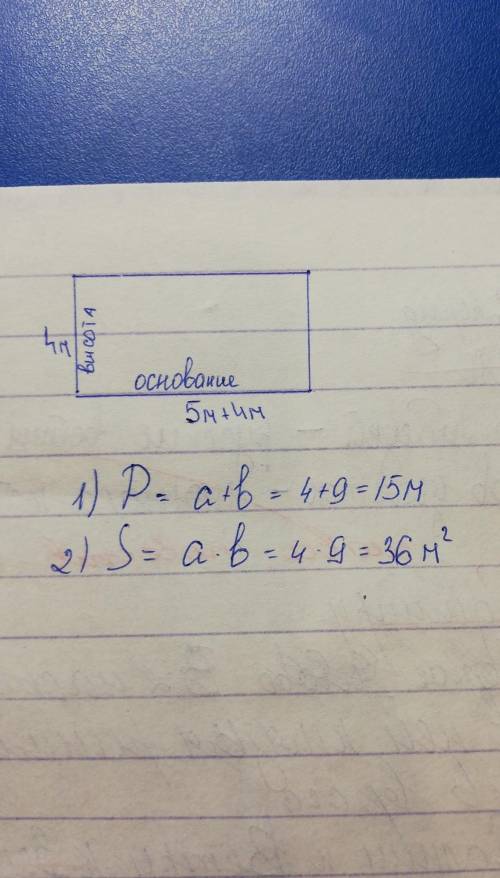 4м
высота
основание
5м+4м
1) P = a+b = 4+9 = 15м
2) S = a·b = 4·9 = 36м²